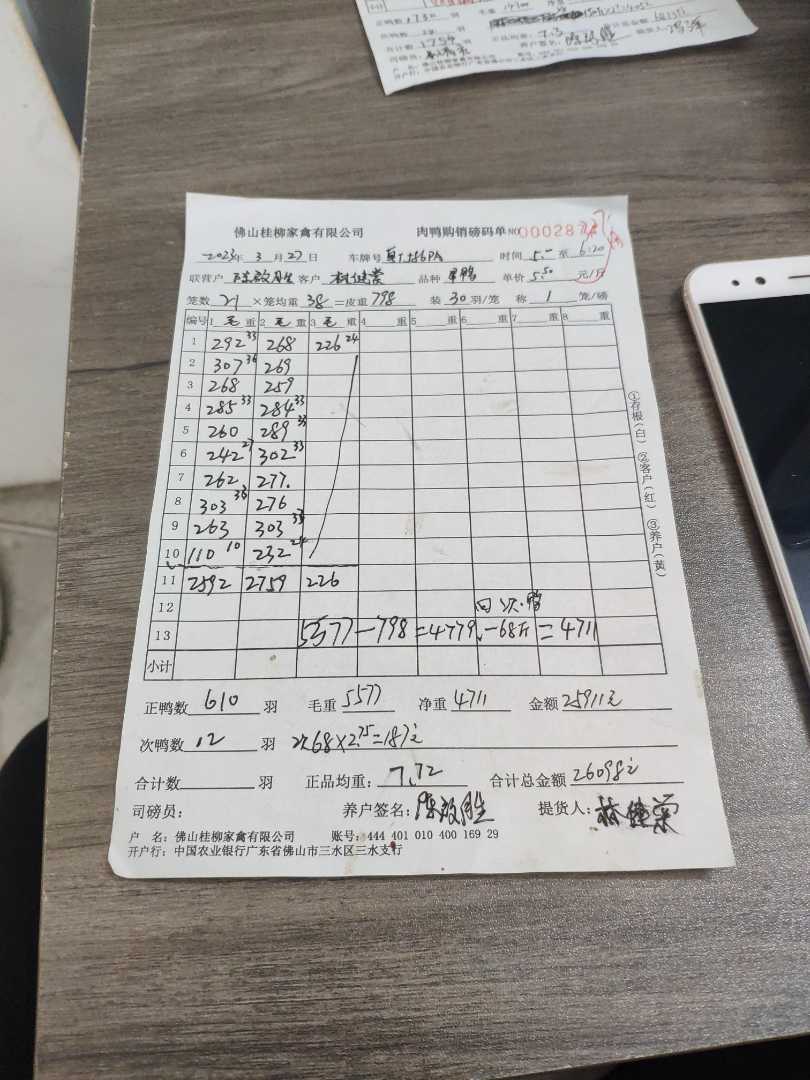 正品均重: 7.3
户 名: 佛山桂柳家禽有限公司
佛山桂柳家禽有限公司 肉鸭购销磅码单 NO 000287
2023年 3月27日 车牌号 时间 5.00 至 6:20
联营户 客户 品种 单价 5.50 元/斤
笼数 21 ×笼均重 38 =皮重 798 装 30 羽/笼 称 1 笼/磅
编号 1 毛 重 2 毛 重 3 毛 重 4 重 5 重 6 重 7 重 8 重
1 292 33 268 226 24
2 307 36 269
3 268 259
4 285 33 284 33
5 260 289 33
6 242 27 302 33
7 262 277.
8 303 36 276
9 263 303 33
10 110 10 232 24
11 2592 2759 226
12 回次鸭
13 5577-798=4779 -68斤=4711
小计
①存根(白) ②客户(红) ③养户(黄)
正鸭数 610 羽 毛重 5577 净重 4711 金额 25911元
次鸭数 12 羽 次68×2.75=187元
合计数 羽 正品均重: 7.72 合计总金额 26098元
司磅员: 养户签名: 提货人:
户 名: 佛山桂柳家禽有限公司 账号: 444 401 010 400 169 29
开户行: 中国农业银行广东省佛山市三水区三水支行